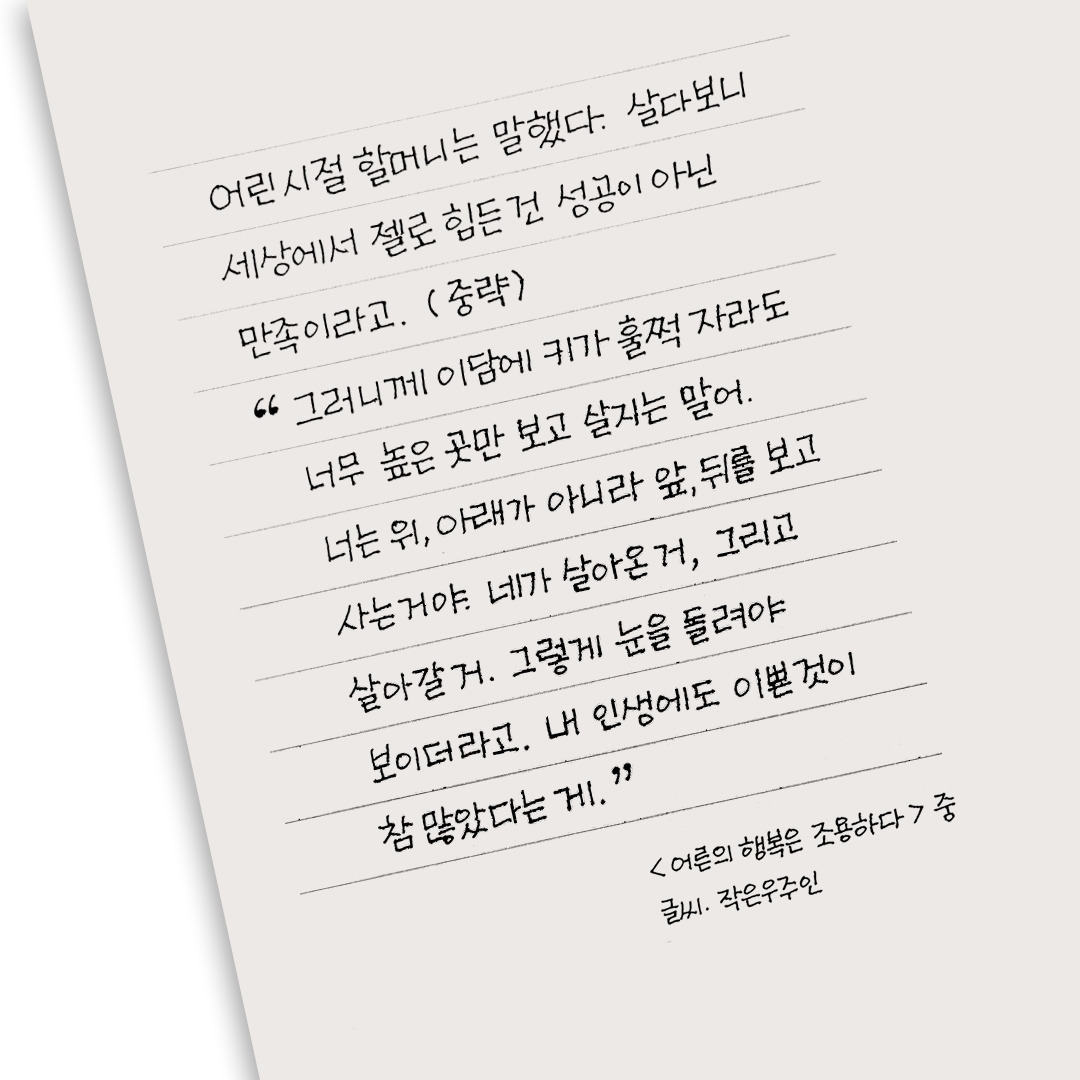 어린시절 할머니는 말했다. 살다보니
세상에서 젤로 힘든건 성공이 아닌
만족이라고. (중략)
“ 그러니께 이담에 키가 훌쩍 자라도
너무 높은 곳만 보고 살지는 말어.
너는 위, 아래가 아니라 앞, 뒤를 보고
사는거야. 네가 살아온 거, 그리고
살아갈 거. 그렇게 눈을 돌려야
보이더라고. 내 인생에도 이쁜것이
참 많았다는 게. ”
< 어른의 행복은 조용하다 > 중
글씨. 작은우주인